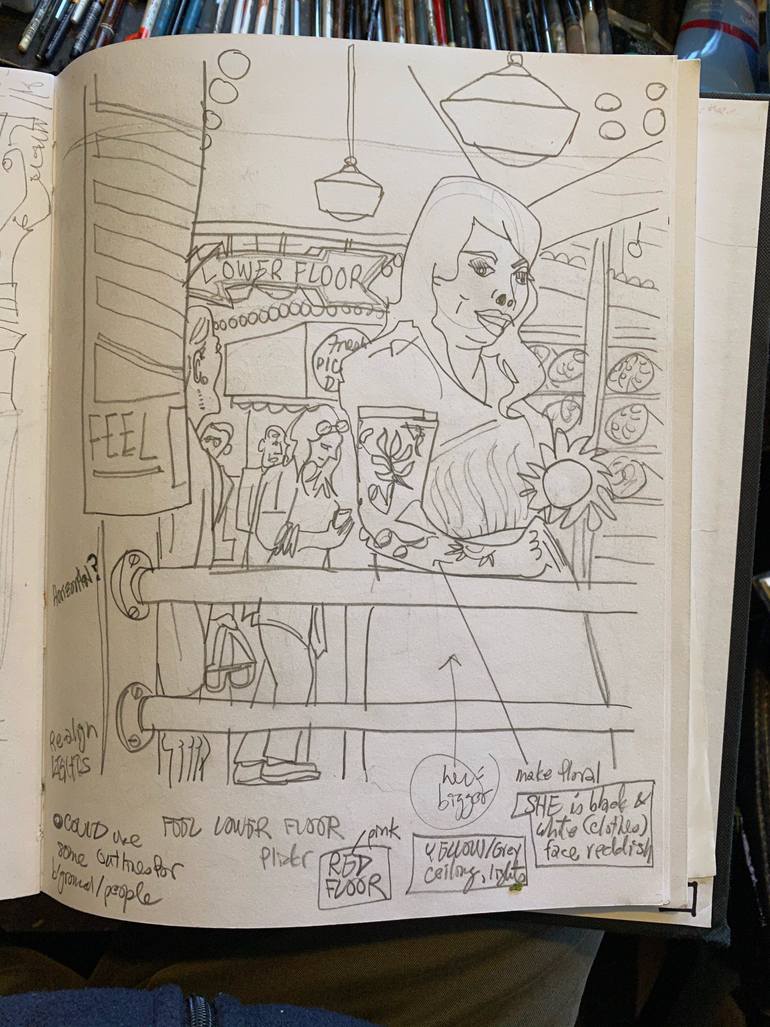 LOWER FLOOR
Fresh
PIC
D
FEEL
Horizontal?
Realign
LIGHTS
make floral
bigger
SHE is black &
white (clothes)
face, reddish
COULD use
some outlines for
bground/people
FEEL LOWER FLOOR
pink
RED
FLOOR
YELLOW/Grey
ceiling, lights